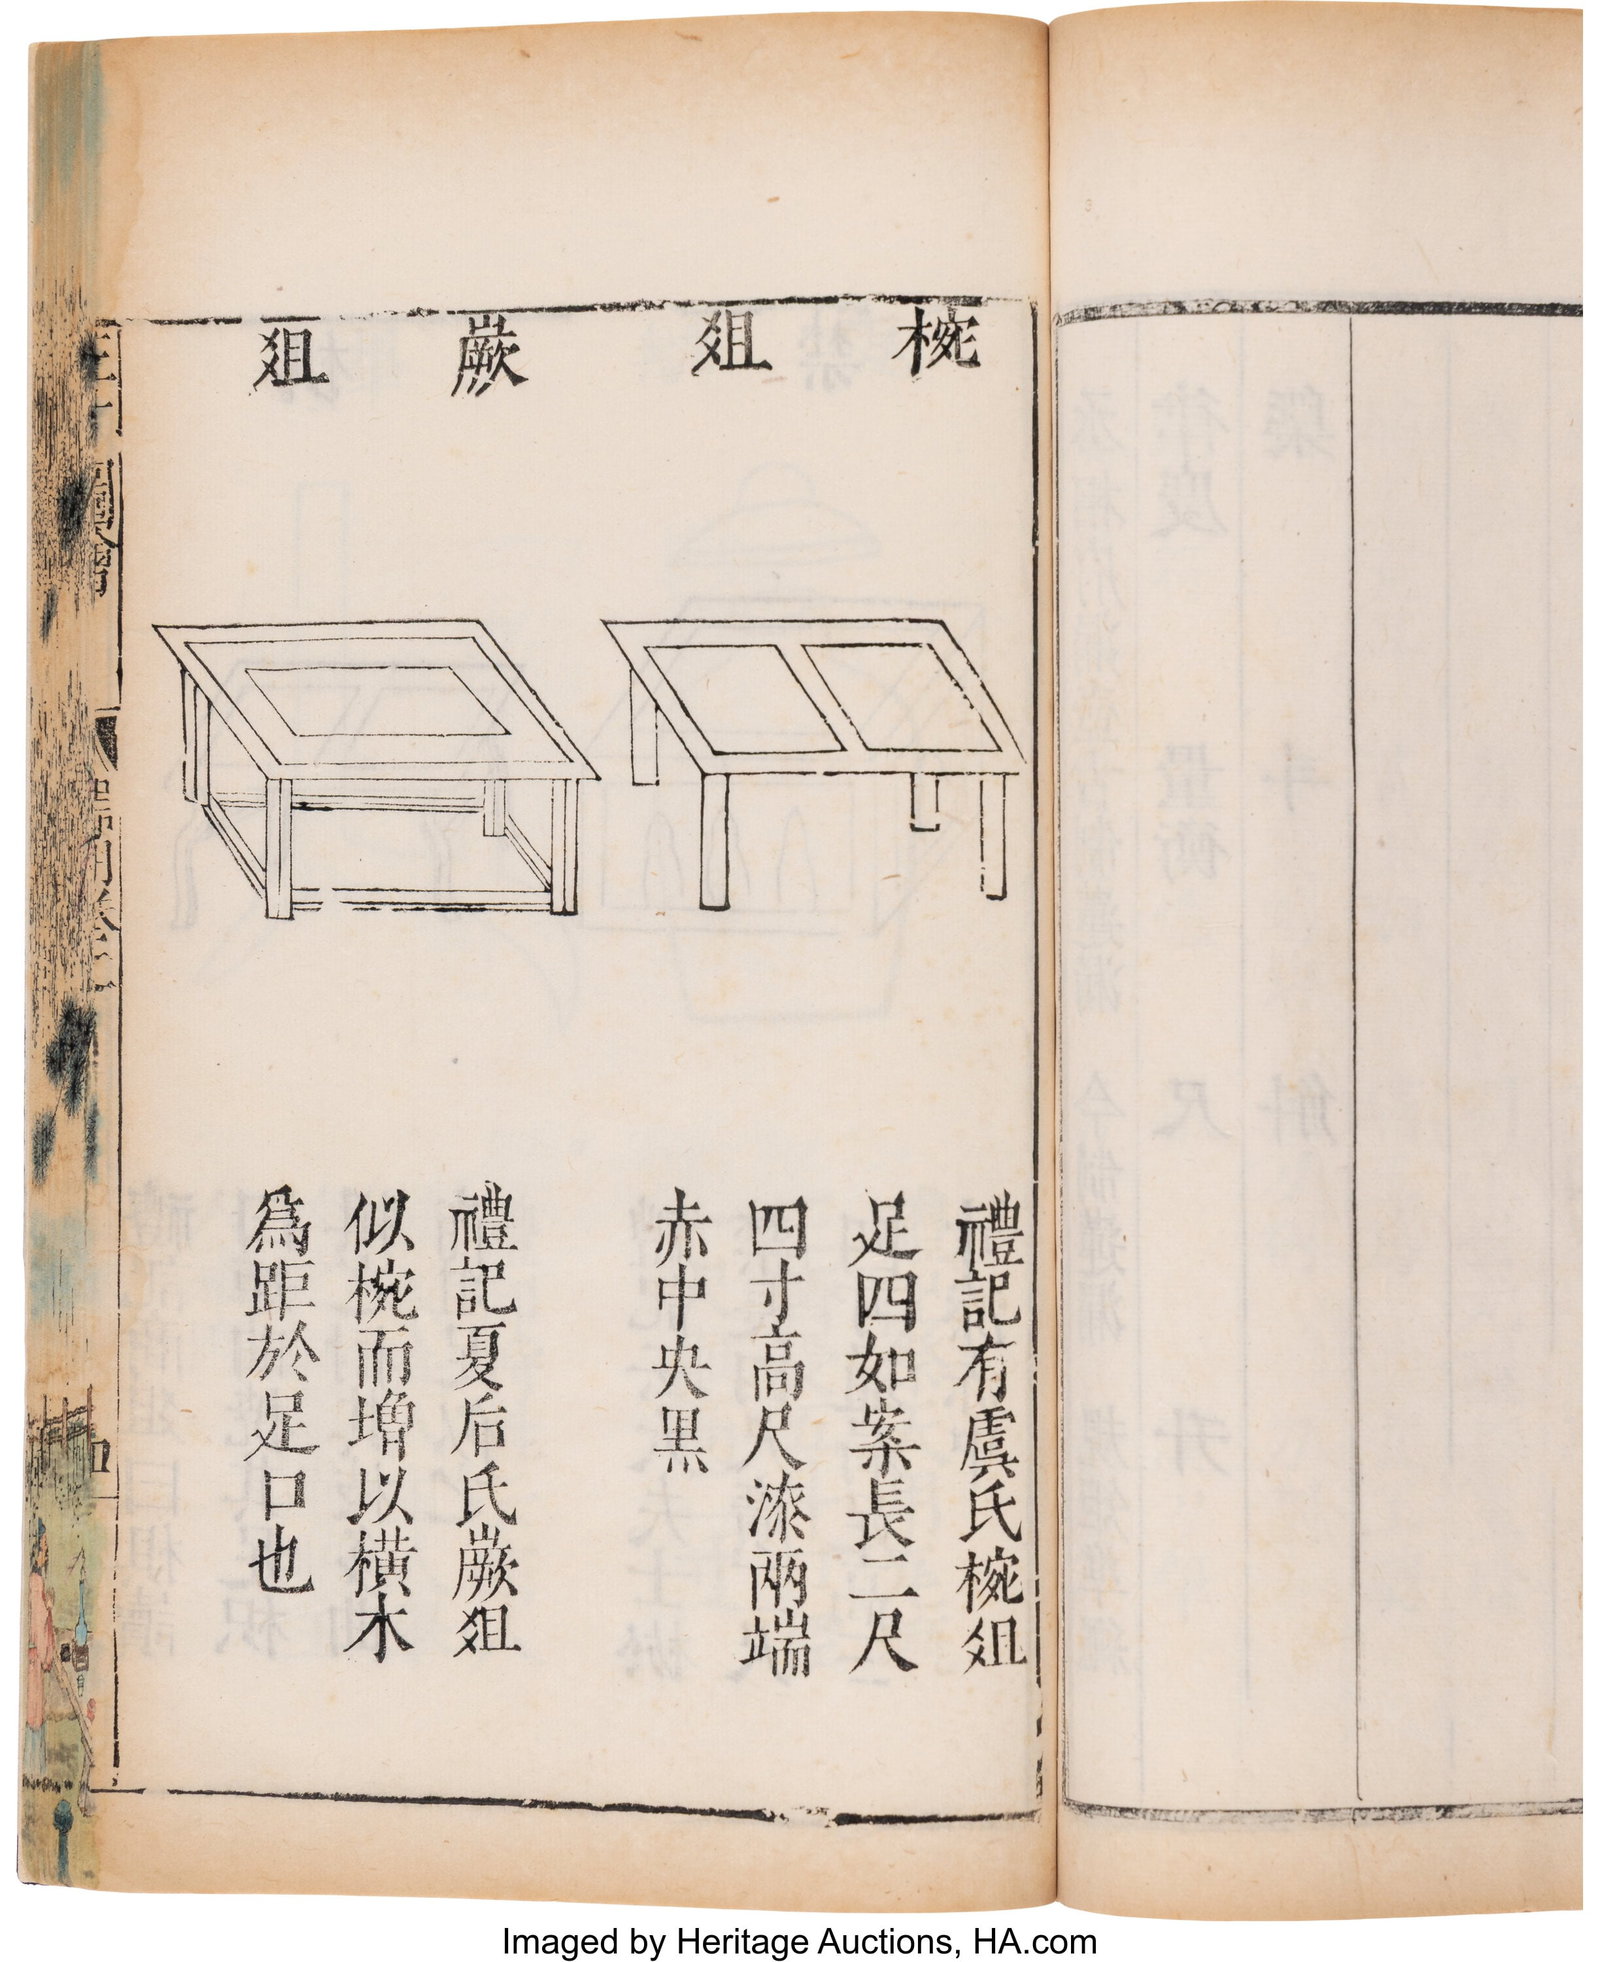 梡俎
嶡俎
禮記有虞氏梡俎
足四如案長二尺
四寸高尺漆兩端
赤中央黑
禮記夏后氏嶡俎
似梡而增以橫木
爲距於足口也
Imaged by Heritage Auctions, HA.com